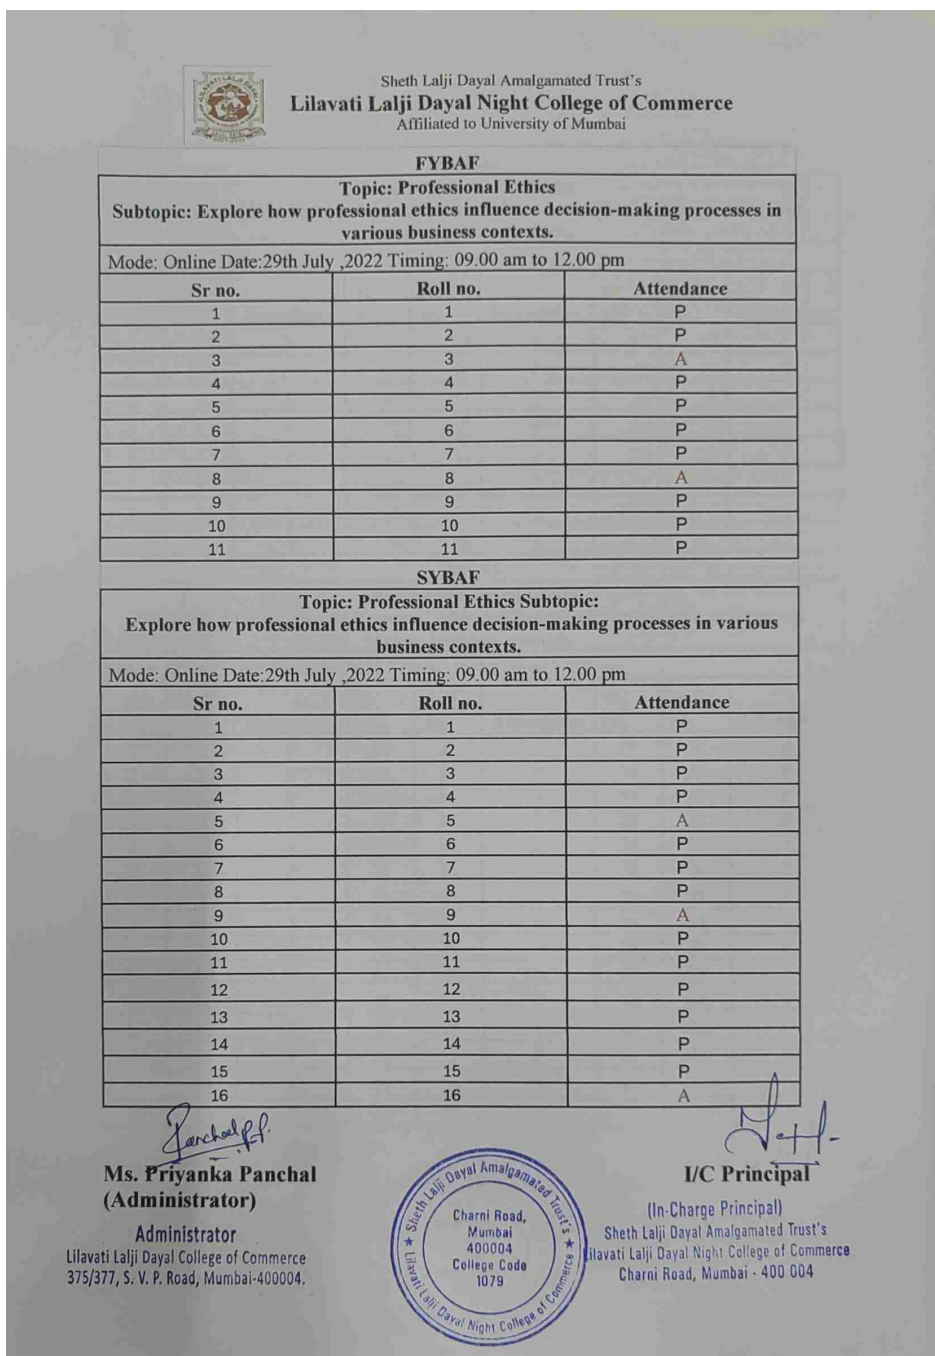 LILAVATI LALJI DAYAL
Sheth Lalji Dayal Amalgamated Trust's
Lilavati Lalji Dayal Night College of Commerce
Affiliated to University of Mumbai
FYBAF
Topic: Professional Ethics
Subtopic: Explore how professional ethics influence decision-making processes in
various business contexts.
Mode: Online Date:29th July ,2022 Timing: 09.00 am to 12.00 pm
Sr no. Roll no. Attendance
1 1 P
2 2 P
3 3 A
4 4 P
5 5 P
6 6 P
7 7 P
8 8 A
9 9 P
10 10 P
11 11 P
SYBAF
Topic: Professional Ethics Subtopic:
Explore how professional ethics influence decision-making processes in various
business contexts.
Mode: Online Date:29th July ,2022 Timing: 09.00 am to 12.00 pm
Sr no. Roll no. Attendance
1 1 P
2 2 P
3 3 P
4 4 P
5 5 A
6 6 P
7 7 P
8 8 P
9 9 A
10 10 P
11 11 P
12 12 P
13 13 P
14 14 P
15 15 P
16 16 A
Panchal P.P.
Ms. Priyanka Panchal
(Administrator)
Administrator
Lilavati Lalji Dayal College of Commerce
375/377, S. V. P. Road, Mumbai-400004.
★ Sheth Lalji Dayal Amalgamated Trust's ★
Lilavati Lalji Dayal Night College of Commerce
Charni Road,
Mumbai
400004
College Code
1079
I/C Principal
(In-Charge Principal)
Sheth Lalji Dayal Amalgamated Trust's
Lilavati Lalji Dayal Night College of Commerce
Charni Road, Mumbai - 400 004